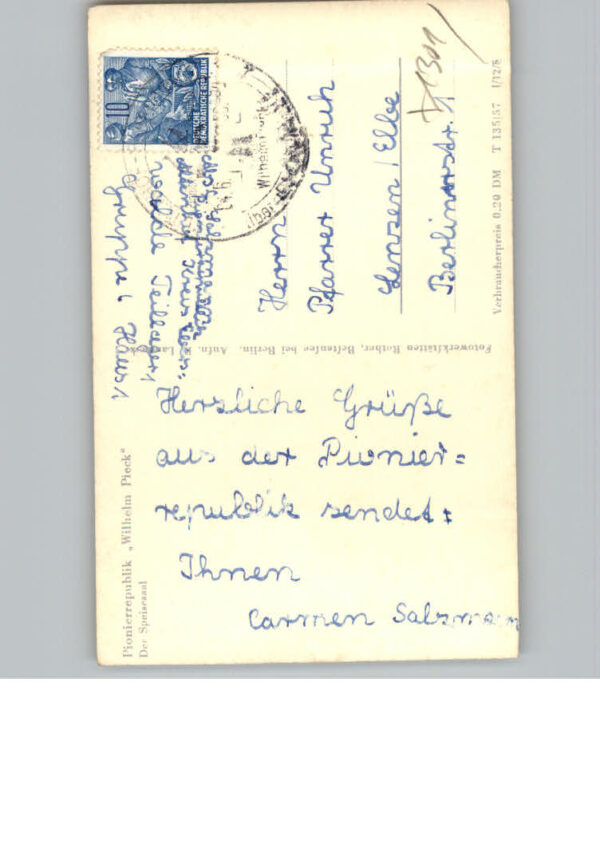 Pionierrepublik „Wilhelm Pieck“
Der Speisesaal
Herzliche Grüße
aus der Pionier=
republik sendet:
Ihnen
Carmen Salzmann
10
DEUTSCHE
DEMOKRATISCHE REPUBLIK
Gruppe 1 Haus 1
Herrn
Pfarrer Unruh
Lenzen / Elbe
Berlinerstr. 11
Fotowerkstätten Rother, Bestensee bei Berlin. Aufn.
Verbraucherpreis 0,20 DM T 135/57 I/12/8